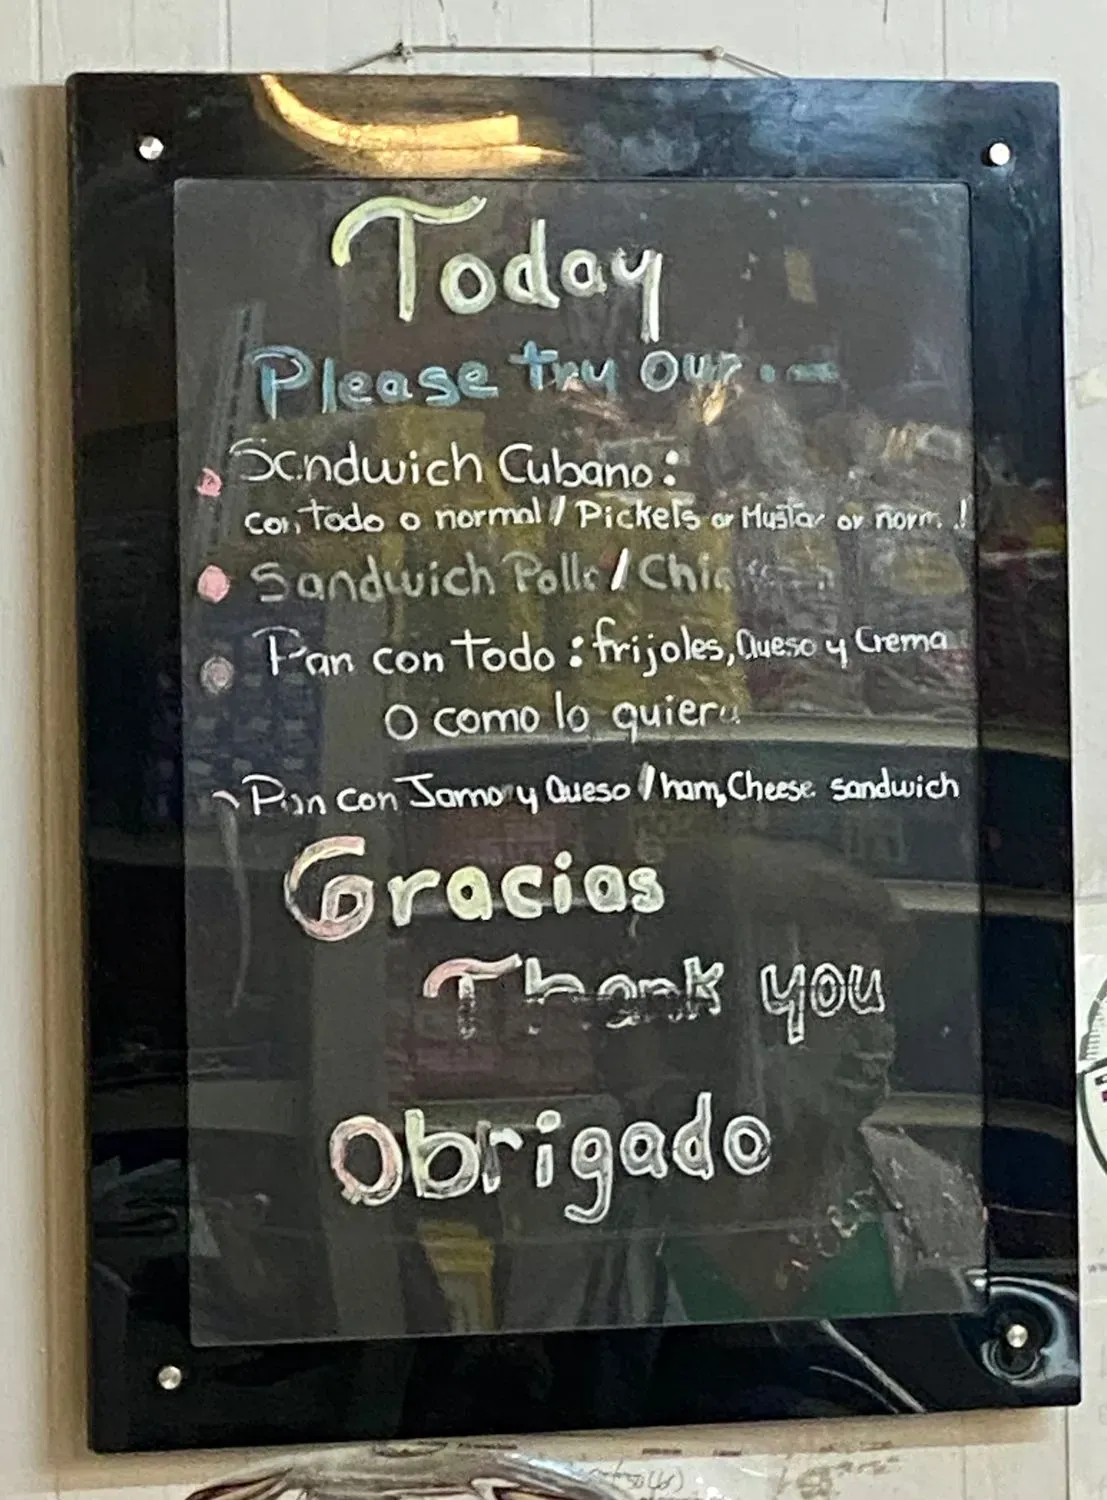 Today
Please try our...
Sandwich Cubano:
con todo o normal / Pickets or Mustar or norm
Sandwich Pollo / Chicken
Pan con Todo: frijoles, Queso y Crema
O como lo quiera
Pan con Jamon y Queso / ham, Cheese sandwich
Gracias
Thank you
Obrigado